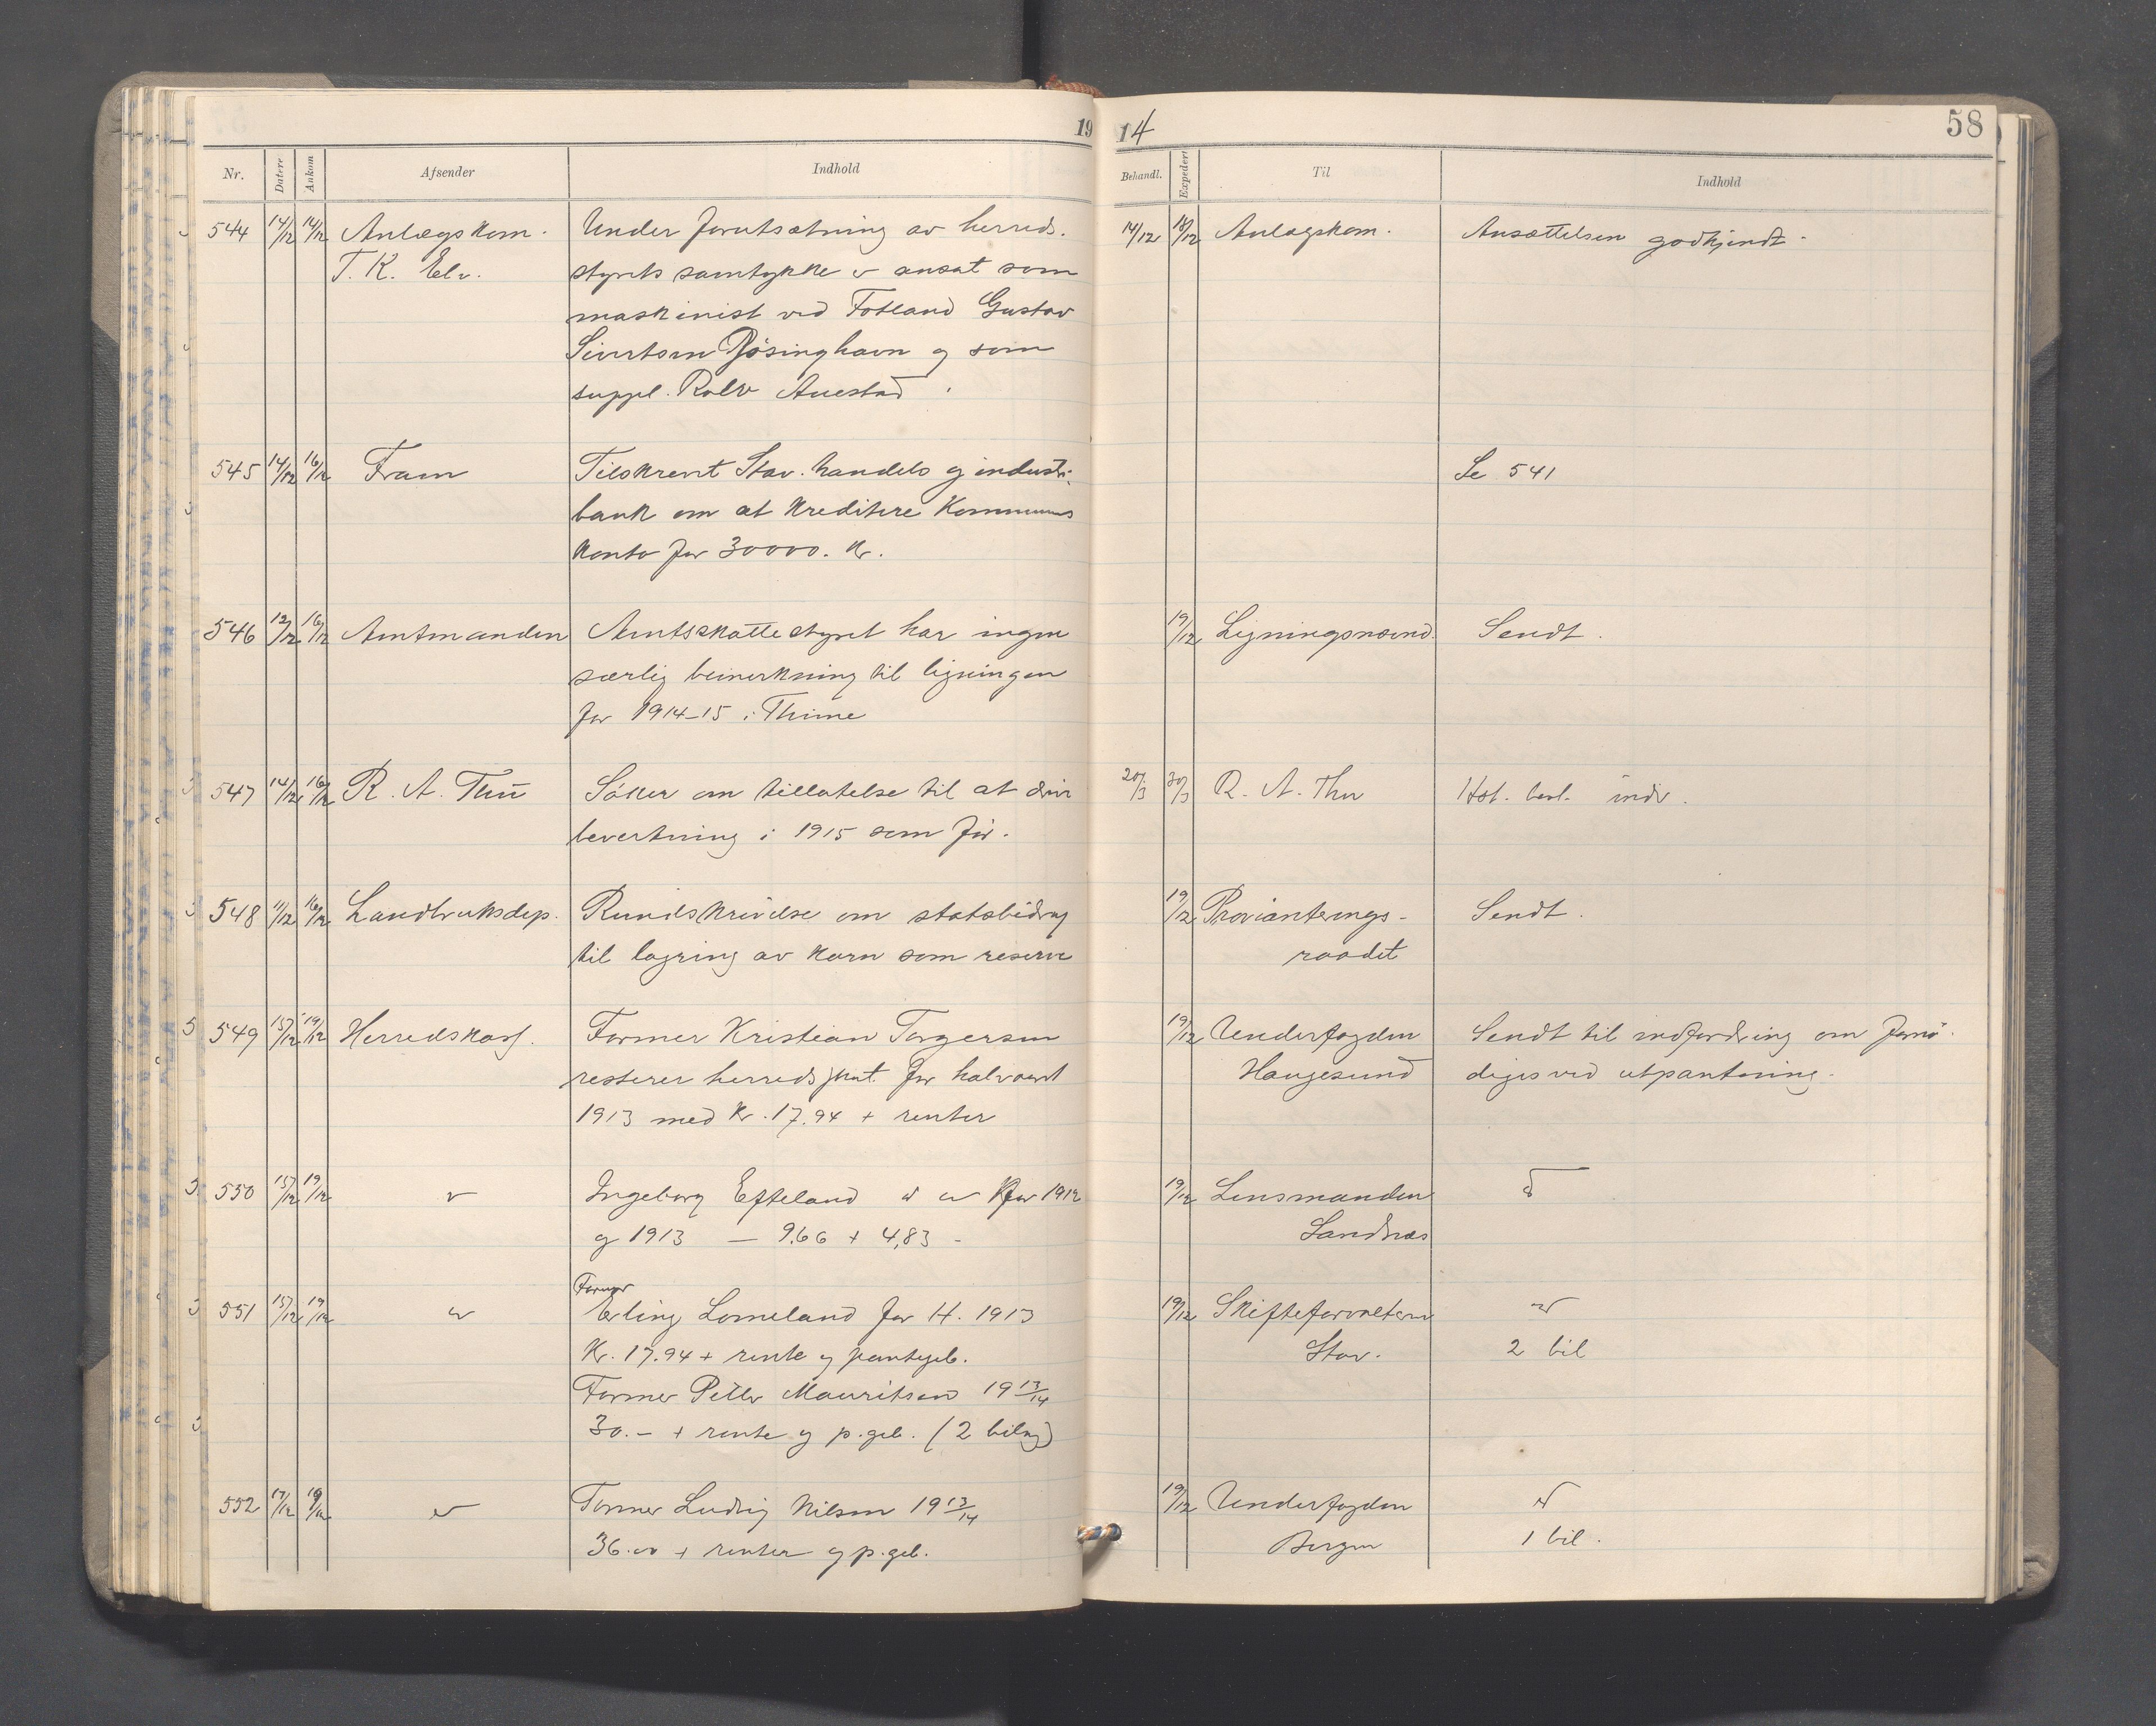 19 14
58
Nr. Datere Ankom Afsender Indhold Behandl. Expedert Til Indhold
544 14/12 14/12 Anlægskom. Under forutsætning av herreds. 14/12 18/12 Anlægskom. Ansættelsen godkjendt.
T. K. Elv. styrets samtykke er ansat som
maskinist ved Fotland Gustav
Sivertsen Røsinghavn og som
suppl. Rolv Auestad.
545 14/12 16/12 Fram Tilskrevt Stav. handels og industri. Se 541
bank om at kreditere Kommunens
konto for 30000. Kr.
546 12/12 16/12 Amtmanden Amtsskattestyret har ingen 19/12 Ligningsnævnd. Sendt.
særlig bemerkning til ligningen
for 1914-15 i Thime
547 14/12 16/12 R. A. Thu Søker om tillatelse til at drive 20/3 30/3 R. A. Thu Hot. bevl. indv.
bevertning i 1915 som før.
548 11/12 16/12 Landbruksdep. Rundskrivelse om statsbidrag 19/12 Provianterings- Sendt.
til lagring av korn som reserve raadet
549 15/12 19/12 Herredskass. Former Kristian Torgersen 19/12 Underfogden Sendt til indfordring om fornø-
resterer herredsskat for halvaaret Haugesund diges ved utpantning.
1913 med Kr. 17.94 + renter
550 15/12 19/12 " Ingeborg Efteland " " for 1912 19/12 Lensmanden
og 1913 — 9.66 + 4,83 - Sandnæs
Former
551 15/12 19/12 " Erling Lomeland for H. 1913 19/12 Skifteforvalteren "
Kr. 17.94 + rente og pantegeb. Stav. 2 bil
Former Petter Mauritsen 19 13/14
30.- + rente og p.geb. (2 bilag)
552 17/12 19/12 " Former Ludvig Nilsen 19 13/14 19/12 Underfogden "
36.00 + renter og p.geb. Bergen 1 bil.